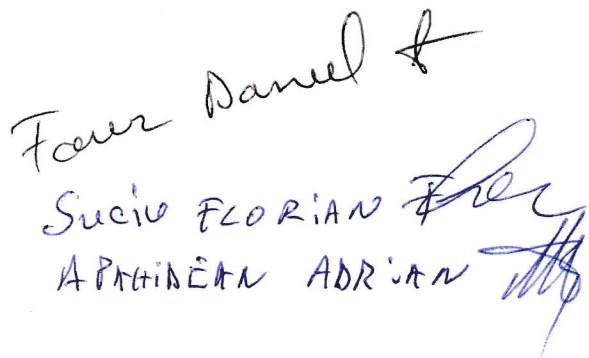 Daniel
Suciu FLORiAN
APAHiDEAN ADRiAN